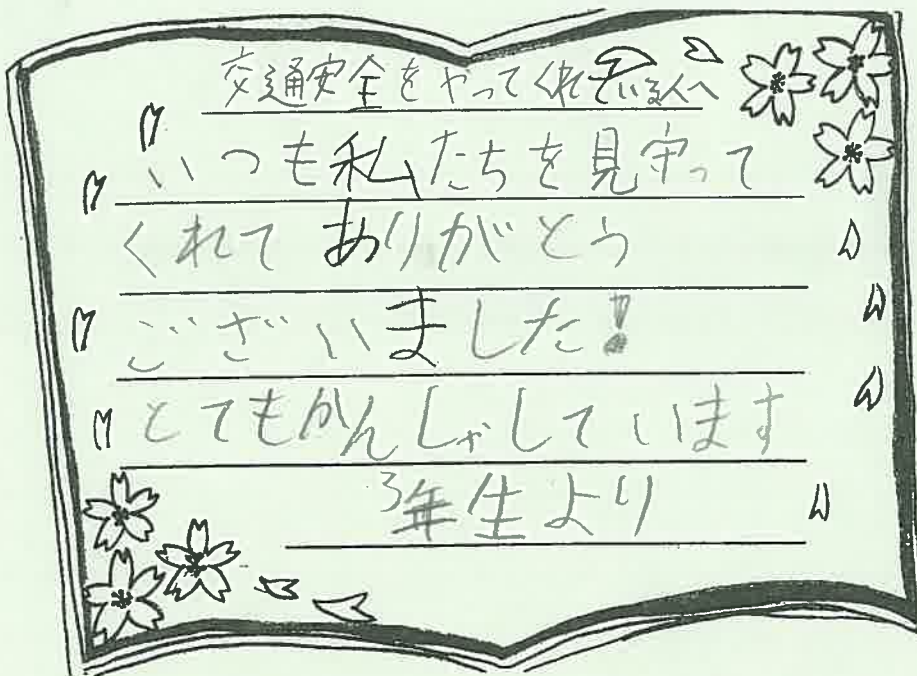 交通安全をやってくれている人へ
いつも私たちを見守って
くれてありがとう
ございました!
とてもかんしゃしています
3年生より